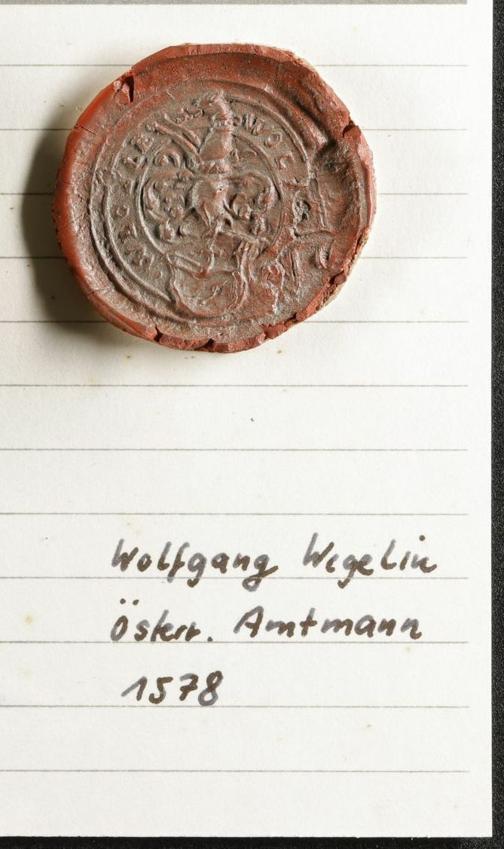 WOLF
Wolfgang Wegelin
Österr. Amtmann
1578